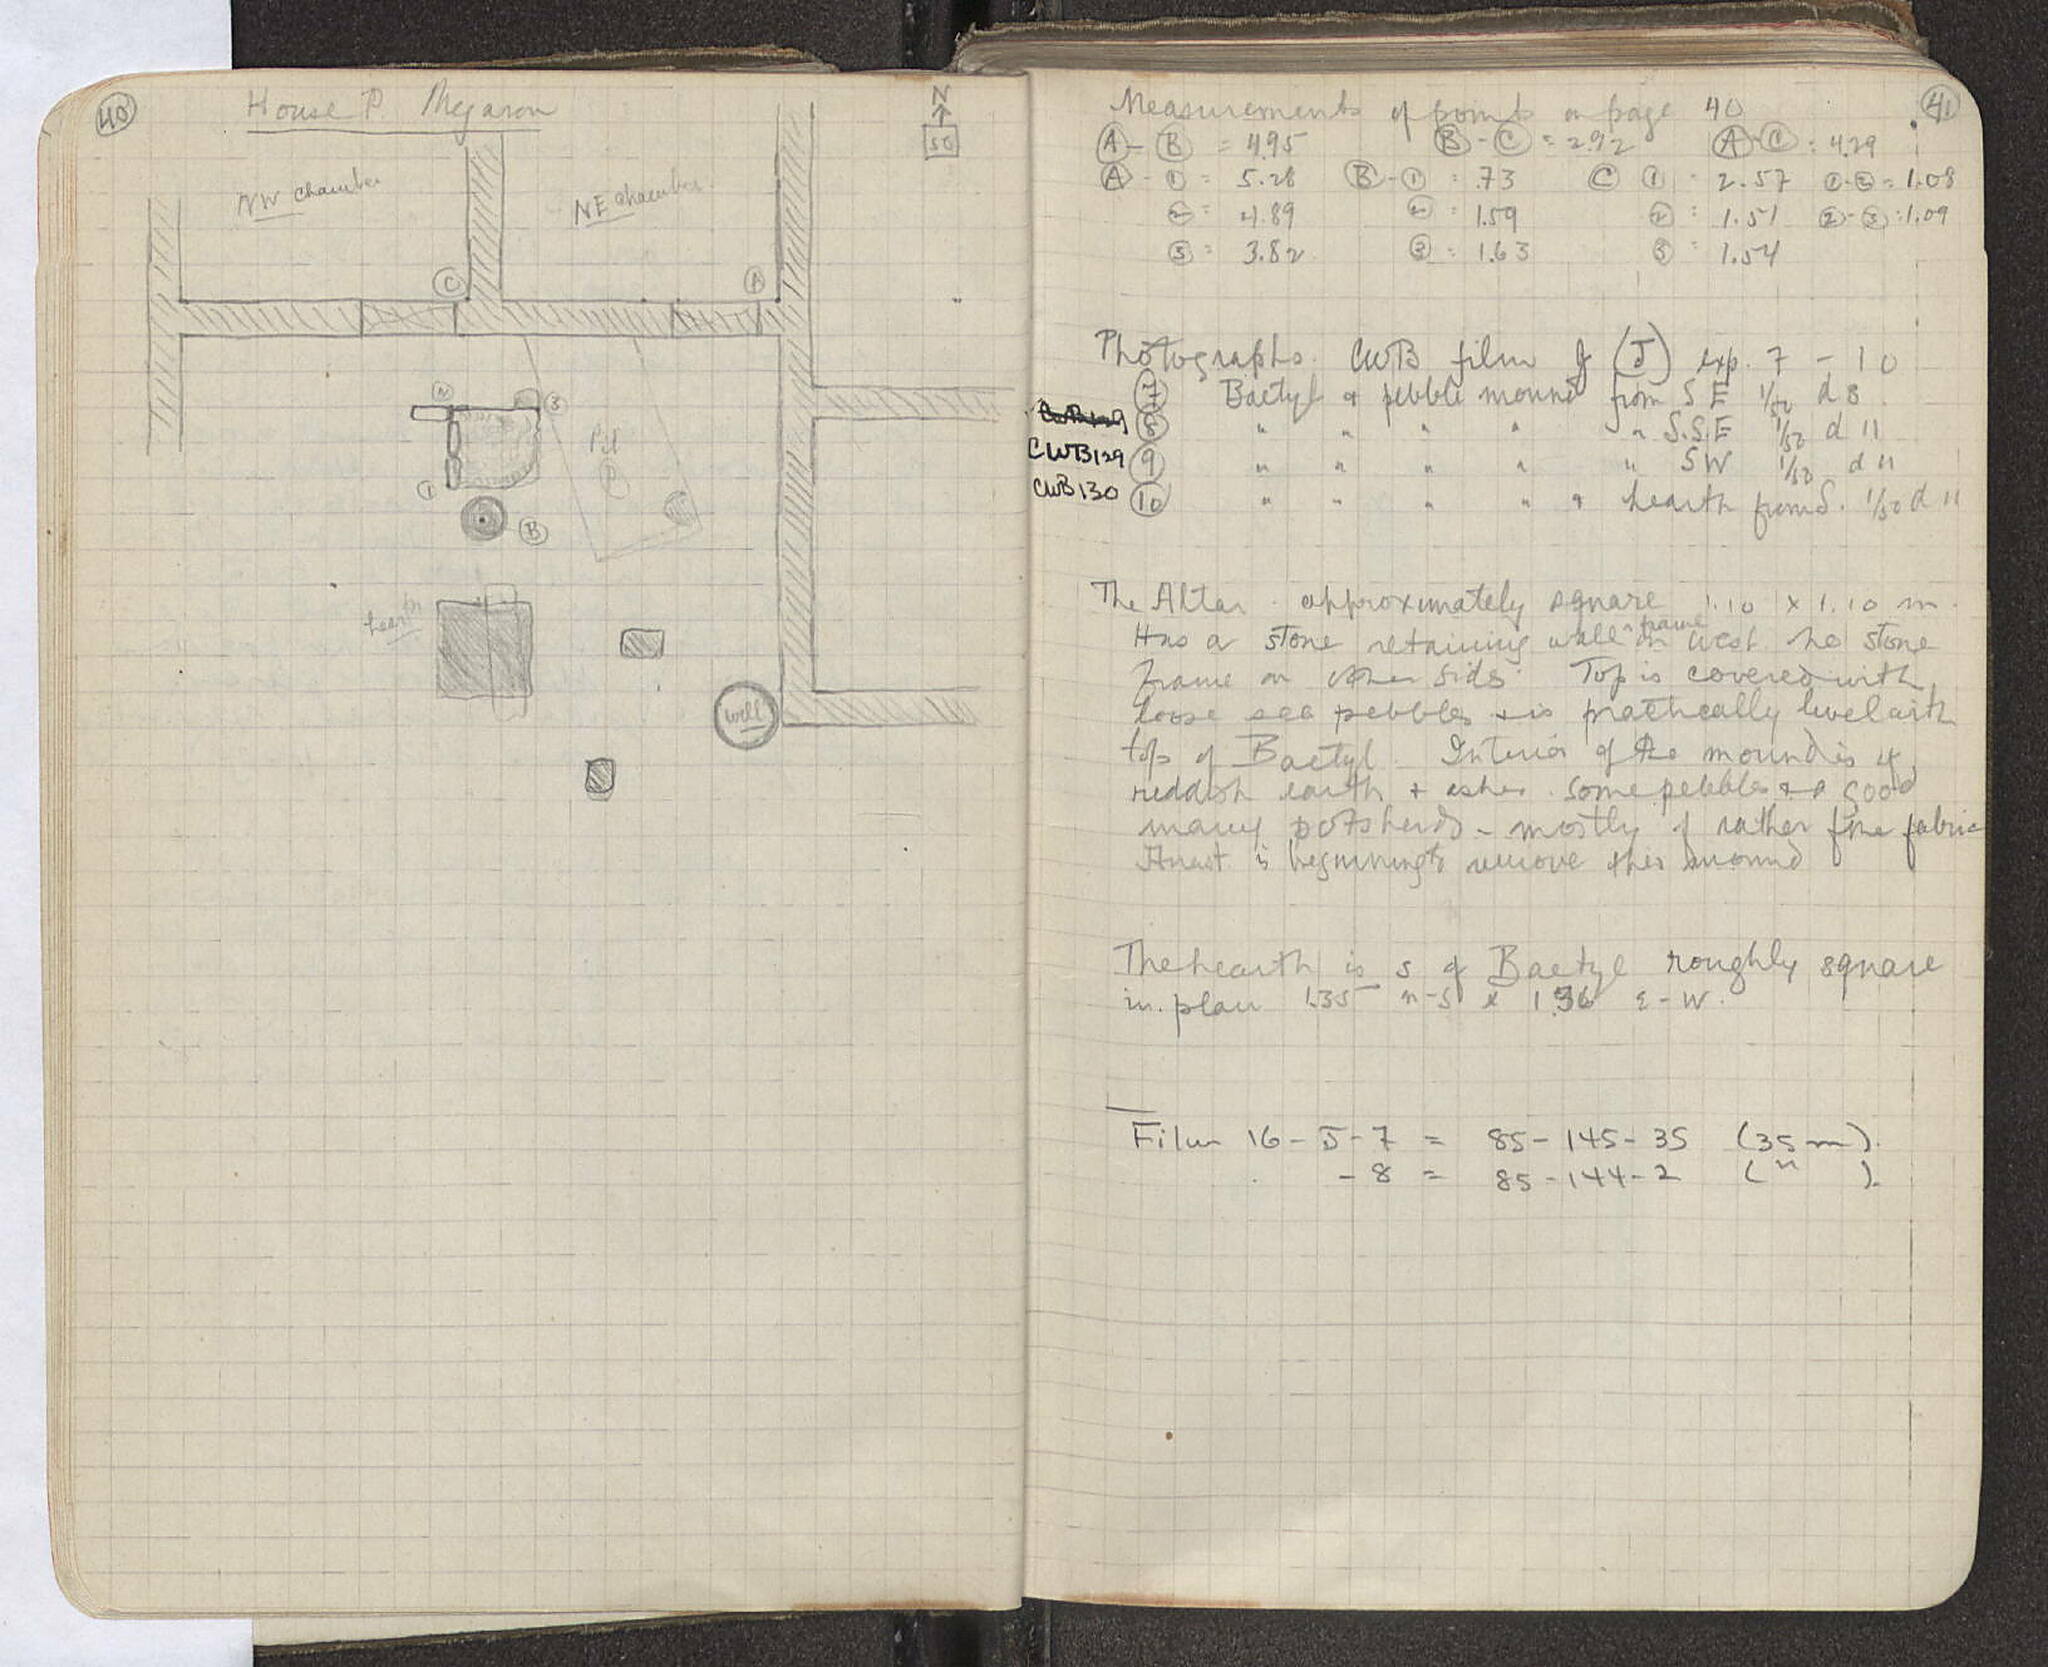 40
House P. Megaron
N
50
NW chamber
NE chamber
C
A
2
3
Pit
P
1
B
hearth
well
41
Measurements of points on page 40
A - B = 4.95 B - C = 2.92 A - C = 4.29
A - 1 = 5.28 B - 1 = .73 C 1 = 2.57 1-2 = 1.08
2 = 4.89 2 = 1.59 2 = 1.51 2-3 = 1.09
3 = 3.82 3 = 1.63 3 = 1.54
Photographs. CWB film J (J) exp. 7 - 10
7 Baetyl & pebble mound from SE 1/50 d 8
CWB129 8 " " " " " S.S.E 1/50 d 11
CWB129 9 " " " " " SW 1/50 d 11
CWB130 10 " " " " & hearth from S. 1/50 d 11
The Altar. approximately square 1.10 x 1.10 m.
Has a stone retaining wall or frame on west no stone
frame on other sids. Top is covered with
loose sea pebbles & is practically level with
top of Baetyl. Interior of the mound is of
reddish earth & ashes. some pebbles & a good
many potsherds - mostly of rather fine fabric
Anast. is beginning to remove this mound
The hearth is S of Baetyl roughly square
in plan 1.35 n-S x 1.36 E-W.
Film 16 - J - 7 = 85-145-35 (35m).
- 8 = 85-144-2 ( " ).